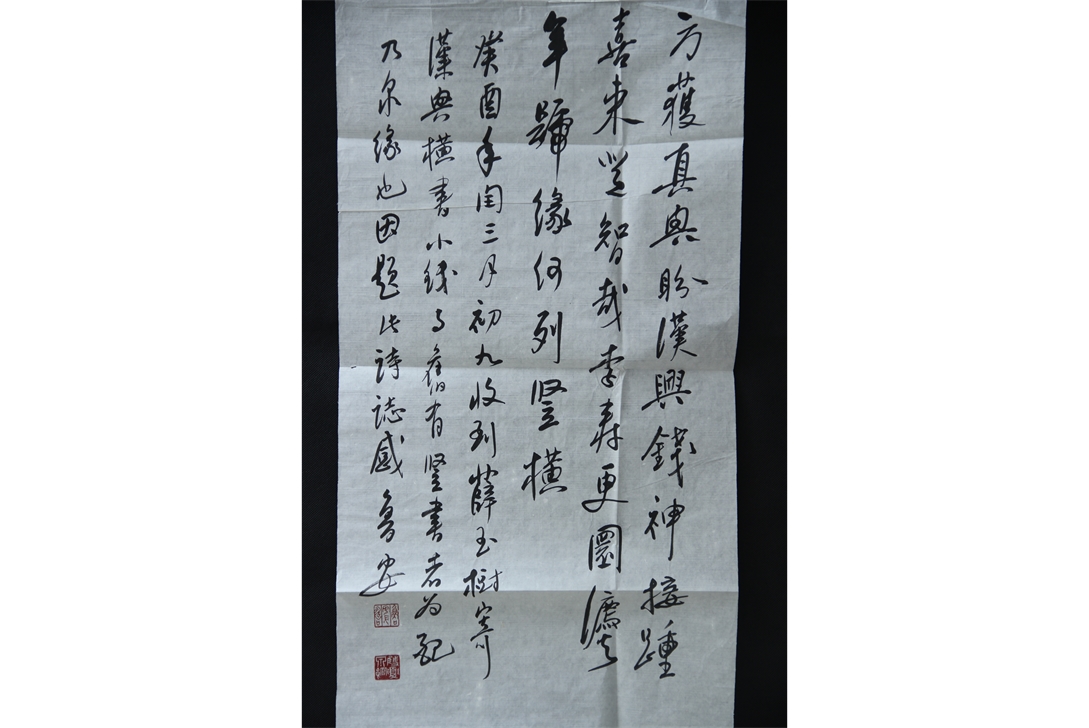 方獲真興盼漢興錢神接踵
喜來登智哉李壽更圜灋
年號緣何列豎橫
癸酉年閏三月初九收到薛玉樹寄
漢興橫書小錢与舊有豎書者为配
乃泉緣也因題此詩誌感 魯安